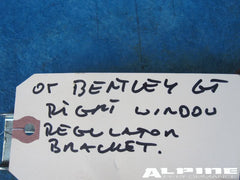 05 BENTLEY GT
RIGHT WINDOW
REGULATOR
BRACKET.
ALPINE